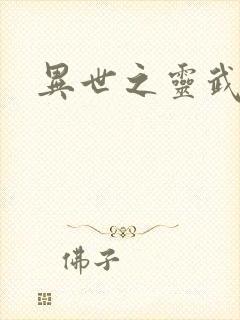 異世之靈武
佛子